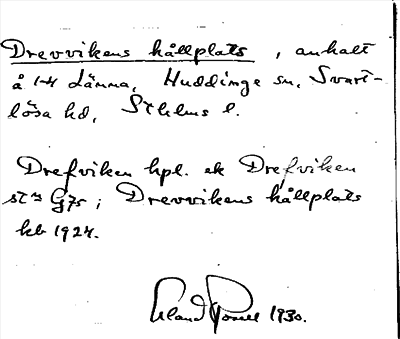 Drevvikens hållplats, anhalt
å 1-4 Länna, Huddinge sn, Svart-
lösa hd, Sthlms l.
Drefviken hpl. ek Drefviken
st; Drevvikens hållplats
kb 1924.
Erland 1930.